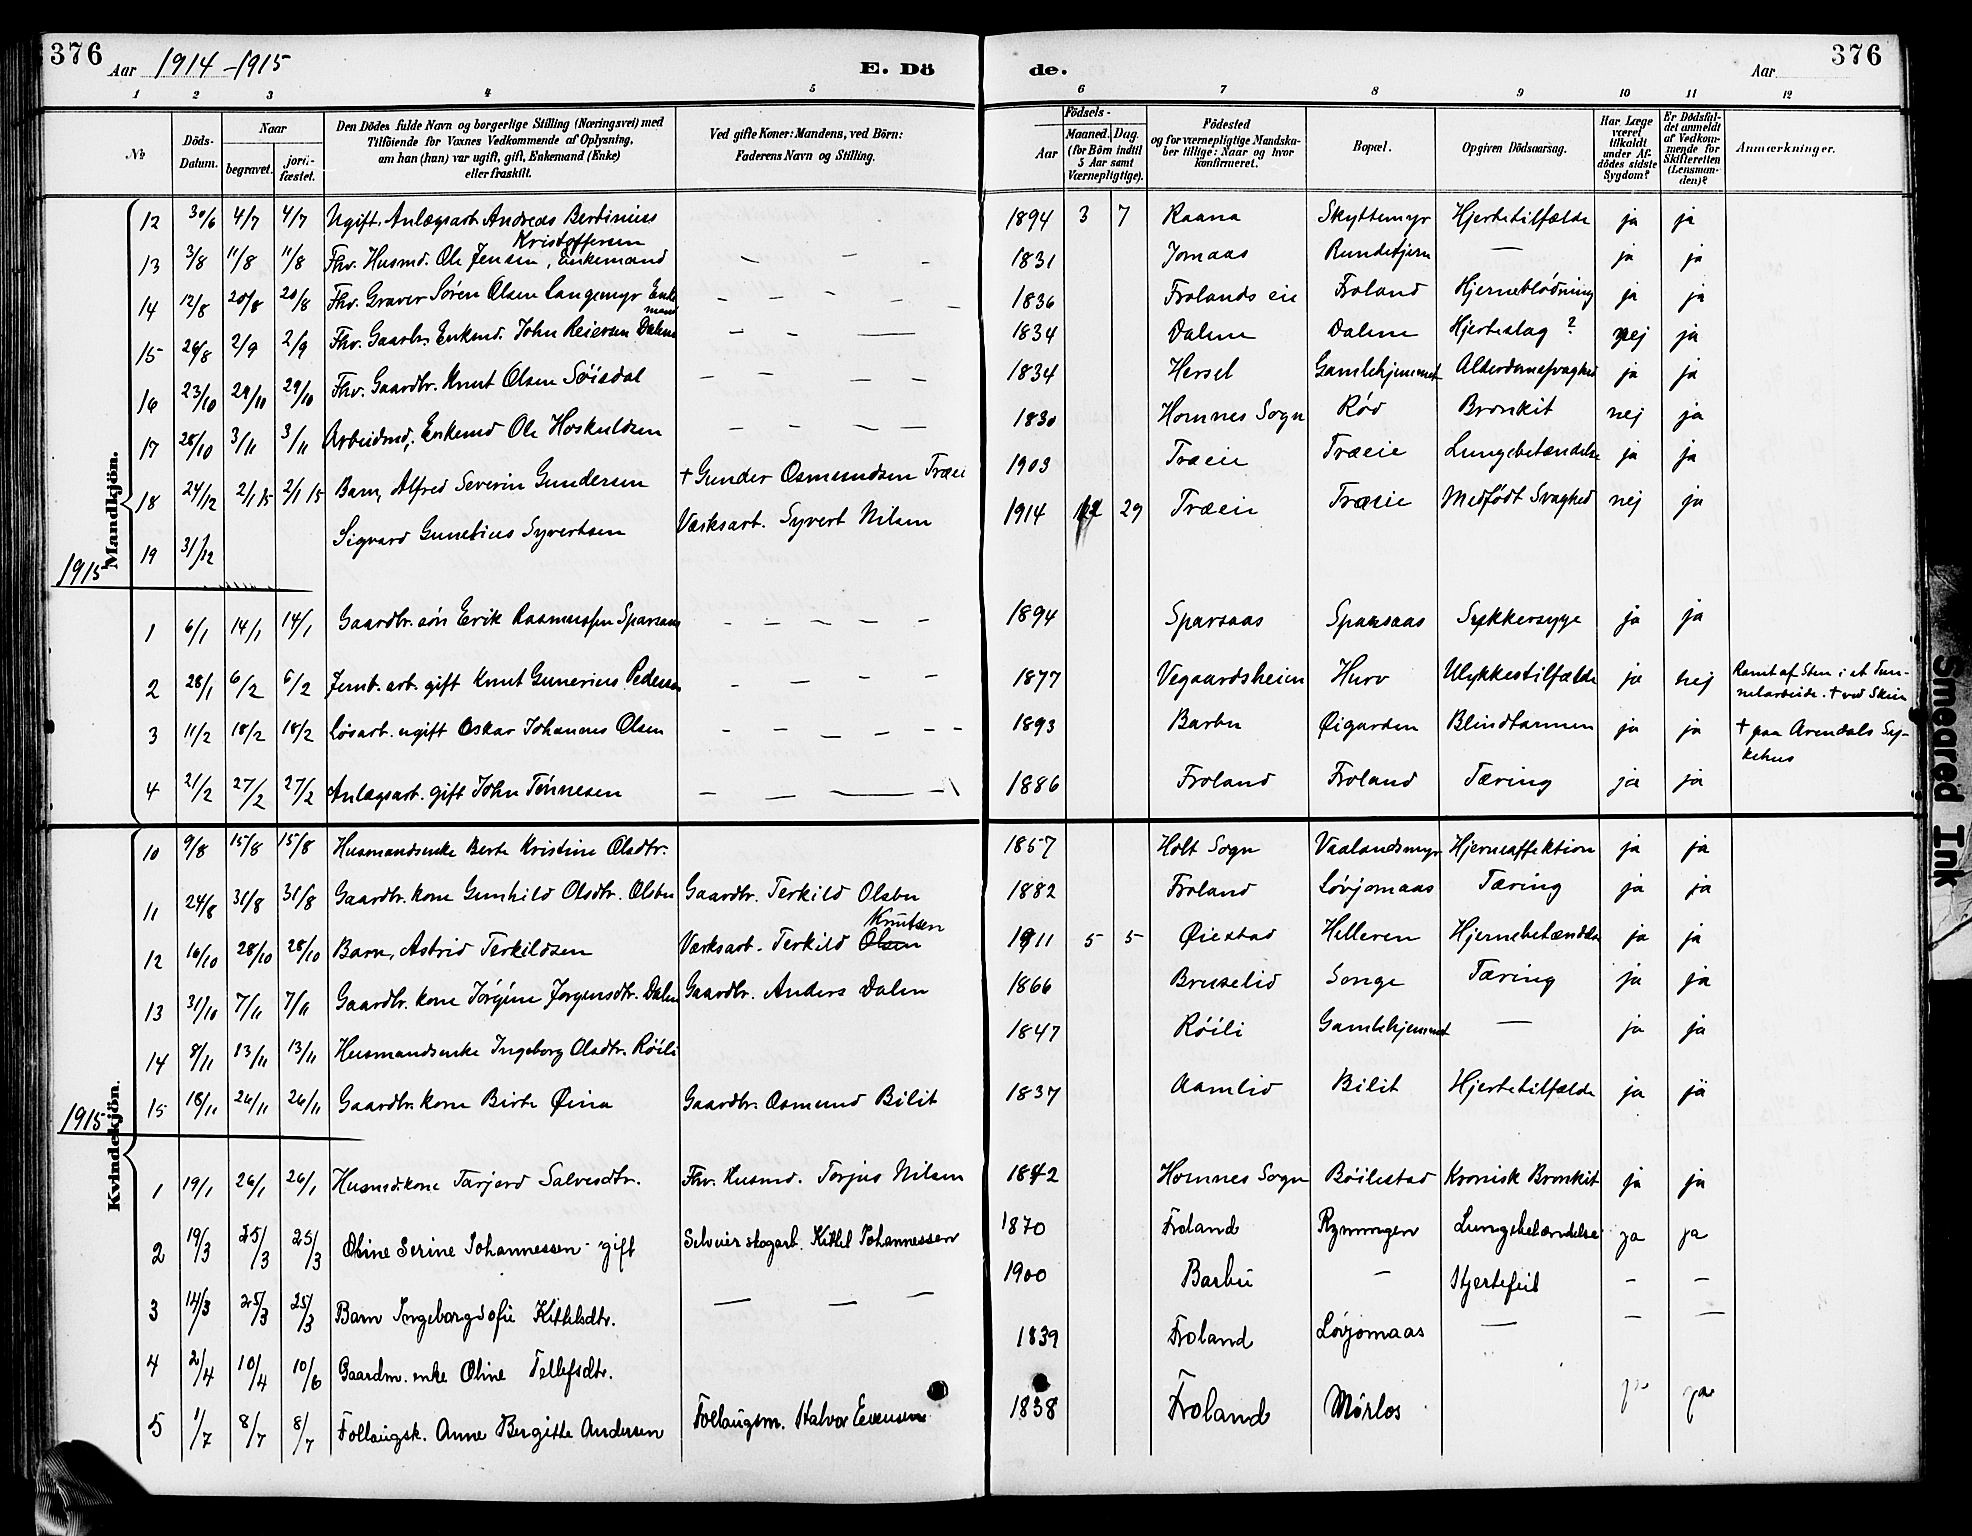 376 Aar 1914-1915 E. Dö de. Aar 376
1 2 3 4 5 6 7 8 9 10 11 12
No Döds-Datum. Naar begravet. jordfæstet. Den Dödes fulde Navn og borgerlige Stilling (Næringsvei) med Tilföiende for Voxnes Vedkommende af Oplysning, om han (hun) var ugift, gift, Enkemand (Enke) eller fraskilt. Ved gifte Koner: Mandens, ved Börn: Faderens Navn og Stilling. Födsels- Aar Maaned. Dag. (for Börn indtil 5 Aar samt Værnepligtige). Födested og for værnepligtige Mandskaber tillige: Naar og hvor konfirmeret. Bopæl. Opgiven Dödsaarsag. Har Læge været tilkaldt under Afdödes sidste Sygdom? Er Dödsfaldet anmeldt af Vedkommende for Skifteretten (Lensmanden)? Anmærkninger.
Mandkjön.
12 30/6 4/7 4/7 Ugift. Anlægsarb. Andreas Bertinius Kristoffersen 1894 3 7 Raana Skyttemyr Hjertetilfælde ja ja
13 3/8 11/8 11/8 Fhv. Husmd. Ole Jensen, Enkemand — — — 1831 Jomaas Rundetjern — ja ja
14 12/8 20/8 20/8 Fhv. Graver Sören Olsen Langemyr Enkemand — — — — — 1836 Frolands eie Froland Hjerneblödning ja ja
15 26/8 2/9 2/9 Fhv. Gaardbr. Enkemd. John Reiersen Dalene — — — 1834 Dalene Dalene Hjerteslag ? nej ja
16 23/10 29/10 29/10 Fhv. Gaardbr. Knut Olsen Söisdal — — — — 1834 Hersel Gamlehjemmet Alderdomssvaghed ja ja
17 28/10 3/11 3/11 Arbeidsmd, Enkemd Ole Hoskuldsen — — — — 1830 Homnes Sogn Röd Bronkit nej ja
18 24/12 2/1 15 2/1 15 Barn, Alfred Severin Gundersen + Gunder Osmundsen Træie 1903 Træie Træeie Lungebetændelse ja ja
19 31/12 Sigvard Gunelius Syvertsen Værksarb. Syvert Nilsen 1914 12 29 Træeie Træeie Medfödt Svaghed nej ja
1915
1 6/1 14/1 14/1 Gaardbr. sön Erik Rasmussen Sparsaas — — — — — 1894 Sparsaas Sparsaas Sukkersyge ja ja
2 28/1 6/2 6/2 Jernb. arb. gift Knut Gunerius Pedersen — — — — 1877 Vegaardsheien Hurv Ulykkestilfælde ja nej Ramt af Sten i et Tunnelarbeide. + ved Skien
3 11/2 18/2 18/2 Løsarb. ugift Oskar Johannes Olsen — — — — — — 1893 Barbu Øigarden Blindtarmen ja ja + paa Arendals Sykehus
4 21/2 27/2 27/2 Anlægsarb. gift John Tönnesen — — — — 1886 Froland Froland Tæring ja ja
Kvindekjön.
10 9/8 15/8 15/8 Husmandsenke Berte Kristine Olsdtr. 1857 Holt Sogn Vaalandsmyr Hjerneaffektion ja ja
11 24/8 31/8 31/8 Gaardbr. kone Gunhild Olsdtr. Olsbu Gaardbr. Terkild Olsbu 1882 Froland Løvjomaas Tæring ja ja
12 16/10 28/10 28/10 Barn, Astrid Terkildsen Værksarb. Terkild Olsen Knutsen 1911 5 5 Øiestad Helleren Hjernebetændelse ja ja
13 31/10 7/11 7/11 Gaardbr. kone Jörgine Jörgensdtr. Dalen Gaardbr. Anders Dalen 1866 Bruselid Songe Tæring ja ja
14 8/11 13/11 13/11 Husmandsenke Ingeborg Olsdtr. Röili 1847 Röili Gamlehjemmet — ja ja
15 18/11 26/11 26/11 Gaardbr. kone Birte Øina Gaardbr. Osmund Bilit 1837 Aamlid Bilit Hjertetilfælde ja ja
1915
1 19/1 26/1 26/1 Husmd. kone Tarjerd Salvesdtr. Fhv. Husmd. Torjus Nilsen 1842 Homnes Sogn Böilestad Kronisk Bronkit ja ja
2 19/3 25/3 25/3 Oline Serine Johannessen - gift Selveier skogarb. Kittel Johannessen 1870 Froland Rynningen Lungebetændelse ja ja
3 14/3 25/3 25/3 Barn Ingeborg Sofie Kittelsdtr. — — — 1900 Barbu — Hjertefeil — —
4 2/4 10/4 10/6 Gaardm. enke Oline Tellefsdtr. 1839 Froland Løvjomaas — — —
5 1/7 8/7 8/7 Follaugsk. Anne Bergitte Andersen Follaugsm. Halvor Evensen 1838 Froland Mörlos ja ja
Smeared Ink